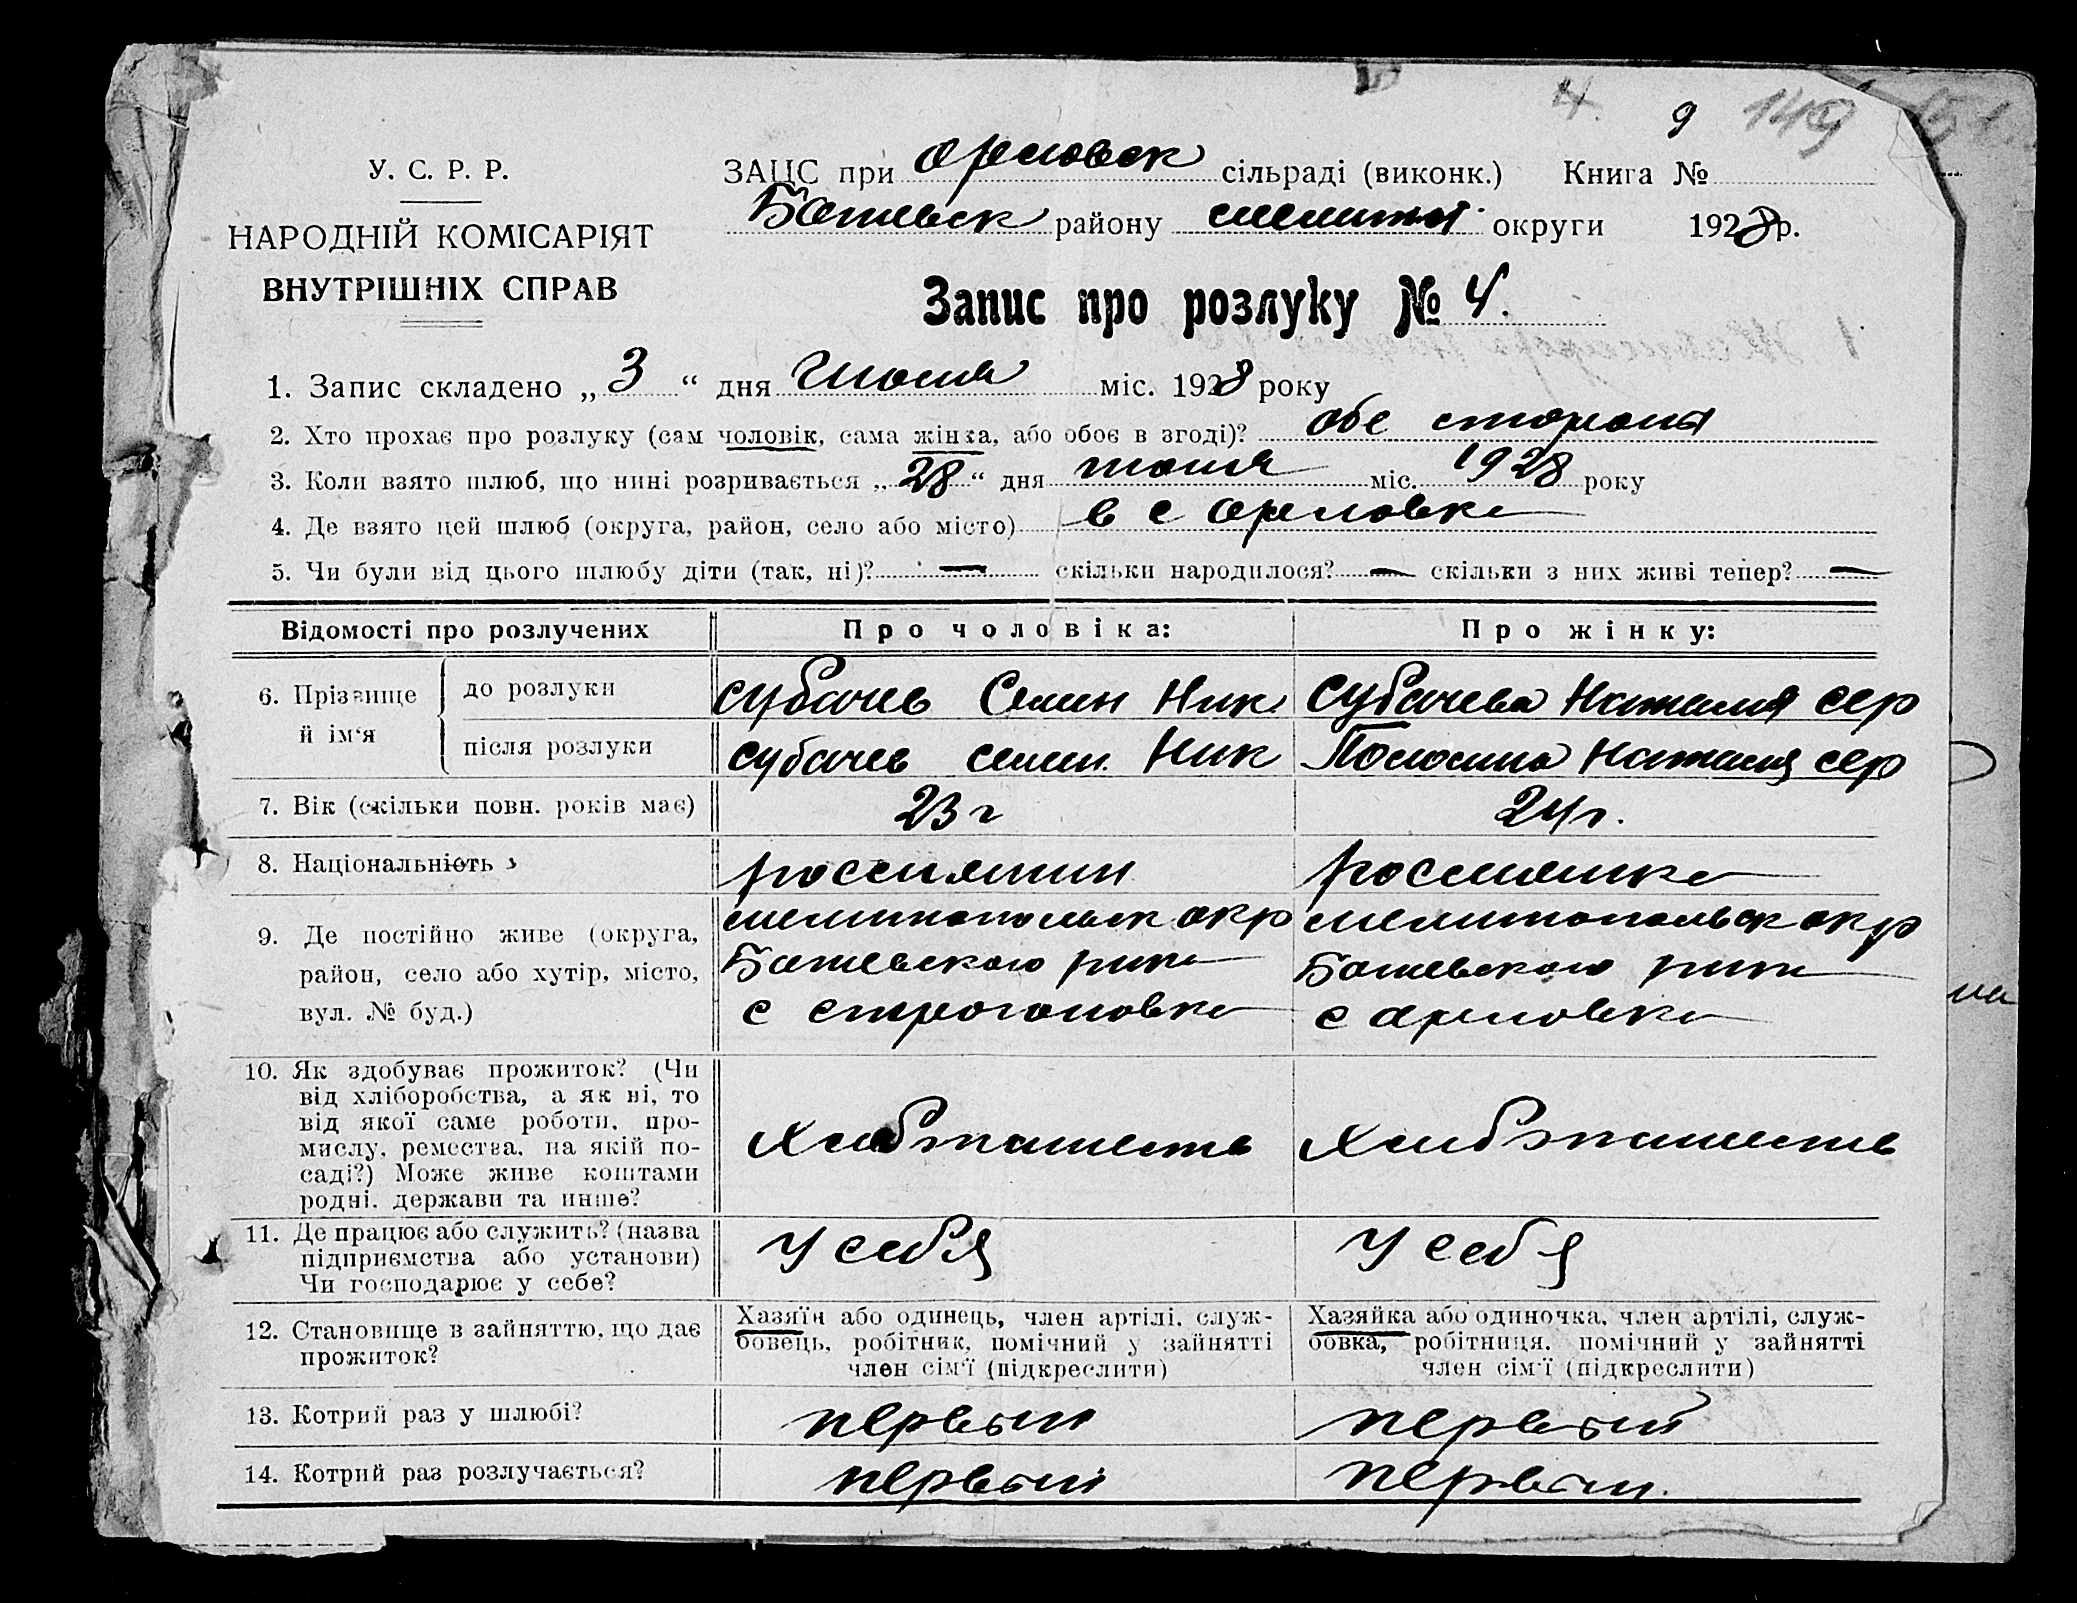 9 149
У. С. Р. Р.
НАРОДНІЙ КОМІСАРІЯТ
ВНУТРІШНІХ СПРАВ
ЗАЦС при Орловск сільраді (виконк.) Книга №
району округи 1928 р.
Запис про розлуку № 4.
1. Запис складено „ 3 “ дня міс. 1928 року
2. Хто прохає про розлуку (сам чоловік, сама жінка, або обоє в згоді)? обе стороны
3. Коли взято шлюб, що нині розривається „ 28 “ дня міс. 1928 року
4. Де взято цей шлюб (округа, район, село або місто) в с Орловке
5. Чи були від цього шлюбу діти (так, ні)? — скільки народилося? — скільки з них живі тепер? —
Відомості про розлучених Про чоловіка: Про жінку:
6. Прізвище й ім‘я
до розлуки Субачев Семен Ник Субачева Наталия Сер
після розлуки Субачев Семен Ник Наталия Сер
7. Вік (скільки повн. років має) 23 г 24 г.
8. Національність россиянин россиянка
9. Де постійно живе (округа,
район, село або хутір, місто,
вул. № буд.)
мелитопольск окр
с Строгоновка
мелитопольск окр
с Орловка
10. Як здобуває прожиток? (Чи
від хліборобства, а як ні, то
від якої саме роботи, про-
мислу, ремества, на якій по-
саді?) Може живе коштами
родні, держави та инше?
11. Де працює або служить? (назва
підприємства або установи)
Чи господарює у себе?
У себя У себя
12. Становище в зайняттю, що дає
прожиток?
Хазяїн або одинець, член артілі, служ-
бовець, робітник, помічний у зайнятті
член сім‘ї (підкреслити)
Хазяйка або одиночка, член артілі, служ-
бовка, робітниця, помічний у зайнятті
член сім‘ї (підкреслити)
13. Котрий раз у шлюбі? первый первый
14. Котрий раз розлучається? первый первый